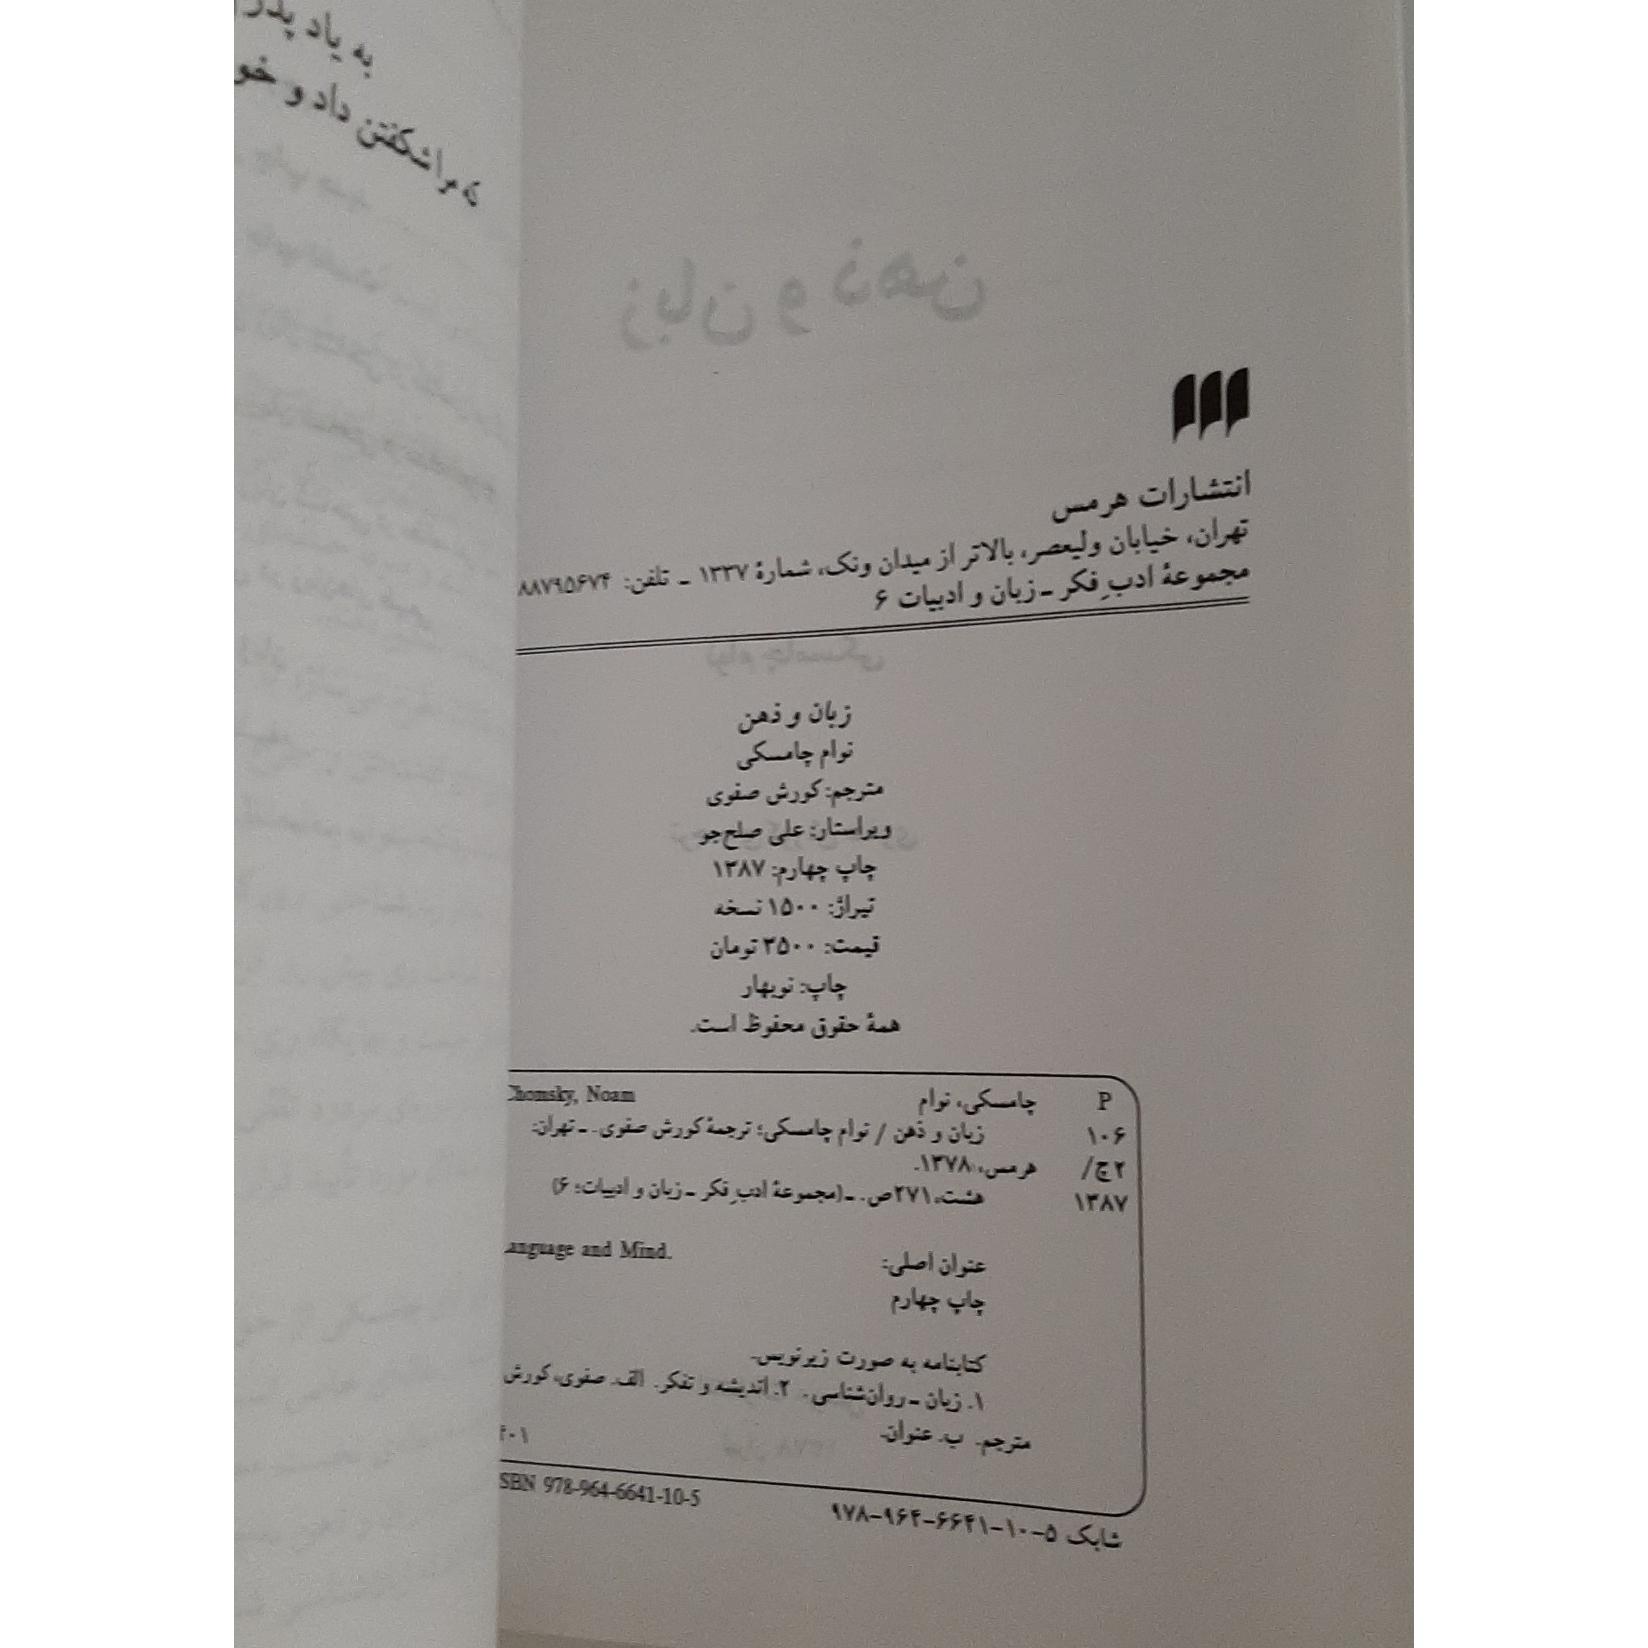 انتشارات هرمس
تهران، خیابان ولیعصر، بالاتر از میدان ونک، شمارهٔ ۱۳۳۷ ـ تلفن: ۸۸۷۹۵۶۷۴
مجموعهٔ ادبِ فکر ـ زبان و ادبیات ۶
زبان و ذهن
نوام چامسکی
مترجم: کورش صفوی
ویراستار: علی صلح‌جو
چاپ چهارم: ۱۳۸۷
تیراژ: ۱۵۰۰ نسخه
قیمت: ۳۵۰۰ تومان
چاپ: نوبهار
همهٔ حقوق محفوظ است.
P چامسکی، نوام Chomsky, Noam
۱۰۶ زبان و ذهن / نوام چامسکی؛ ترجمهٔ کورش صفوی. ـ تهران:
۲چ/ هرمس، ۱۳۷۸.
۱۳۸۷ هشت، ۲۷۱ص. ـ (مجموعهٔ ادبِ فکر ـ زبان و ادبیات؛ ۶)
عنوان اصلی: anguage and Mind.
چاپ چهارم
کتابنامه به صورت زیرنویس.
۱. زبان ـ روان‌شناسی. ۲. اندیشه و تفکر. الف. صفوی، کورش
مترجم. ب. عنوان. ۴۰۱
شابک ۵-۱۰-۶۶۴۱-۹۶۴-۹۷۸ SBN 978-964-6641-10-5
به یاد پدر
که مرا شکفتن داد و خو